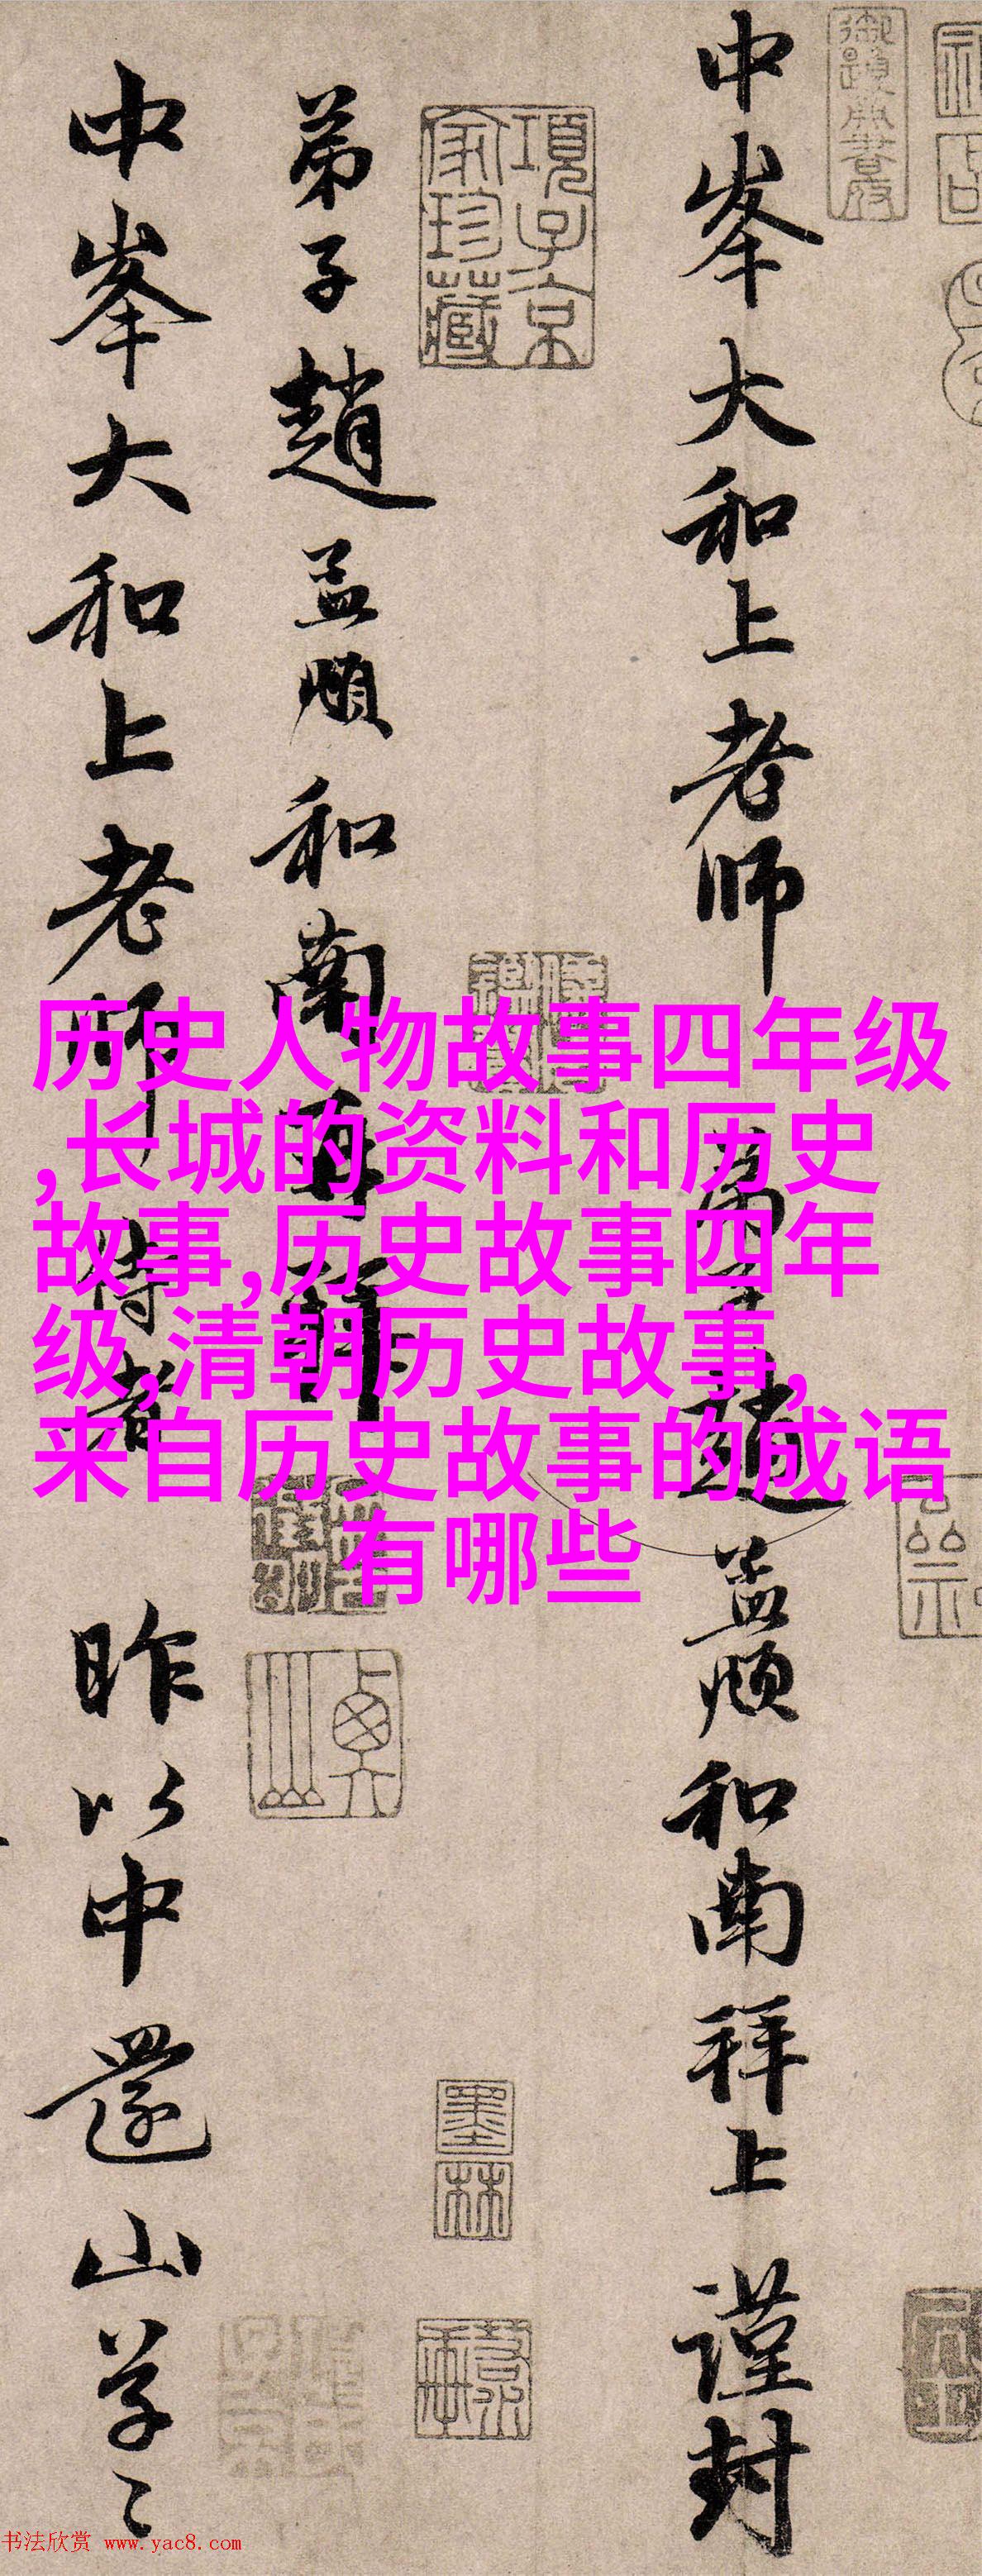 中峯大和上老师
弟子趙孟頫和南拜上 謹封
項子京
家珍藏
弟子趙孟頫和南再拜
中峯大和上老师侍者
昨以中還山草〻
墨
林
历史人物故事四年级
,长城的资料和历史
故事,历史故事四年
级,清朝历史故事,
来自历史故事的成语
有哪些
书法欣赏 www.yac8.com